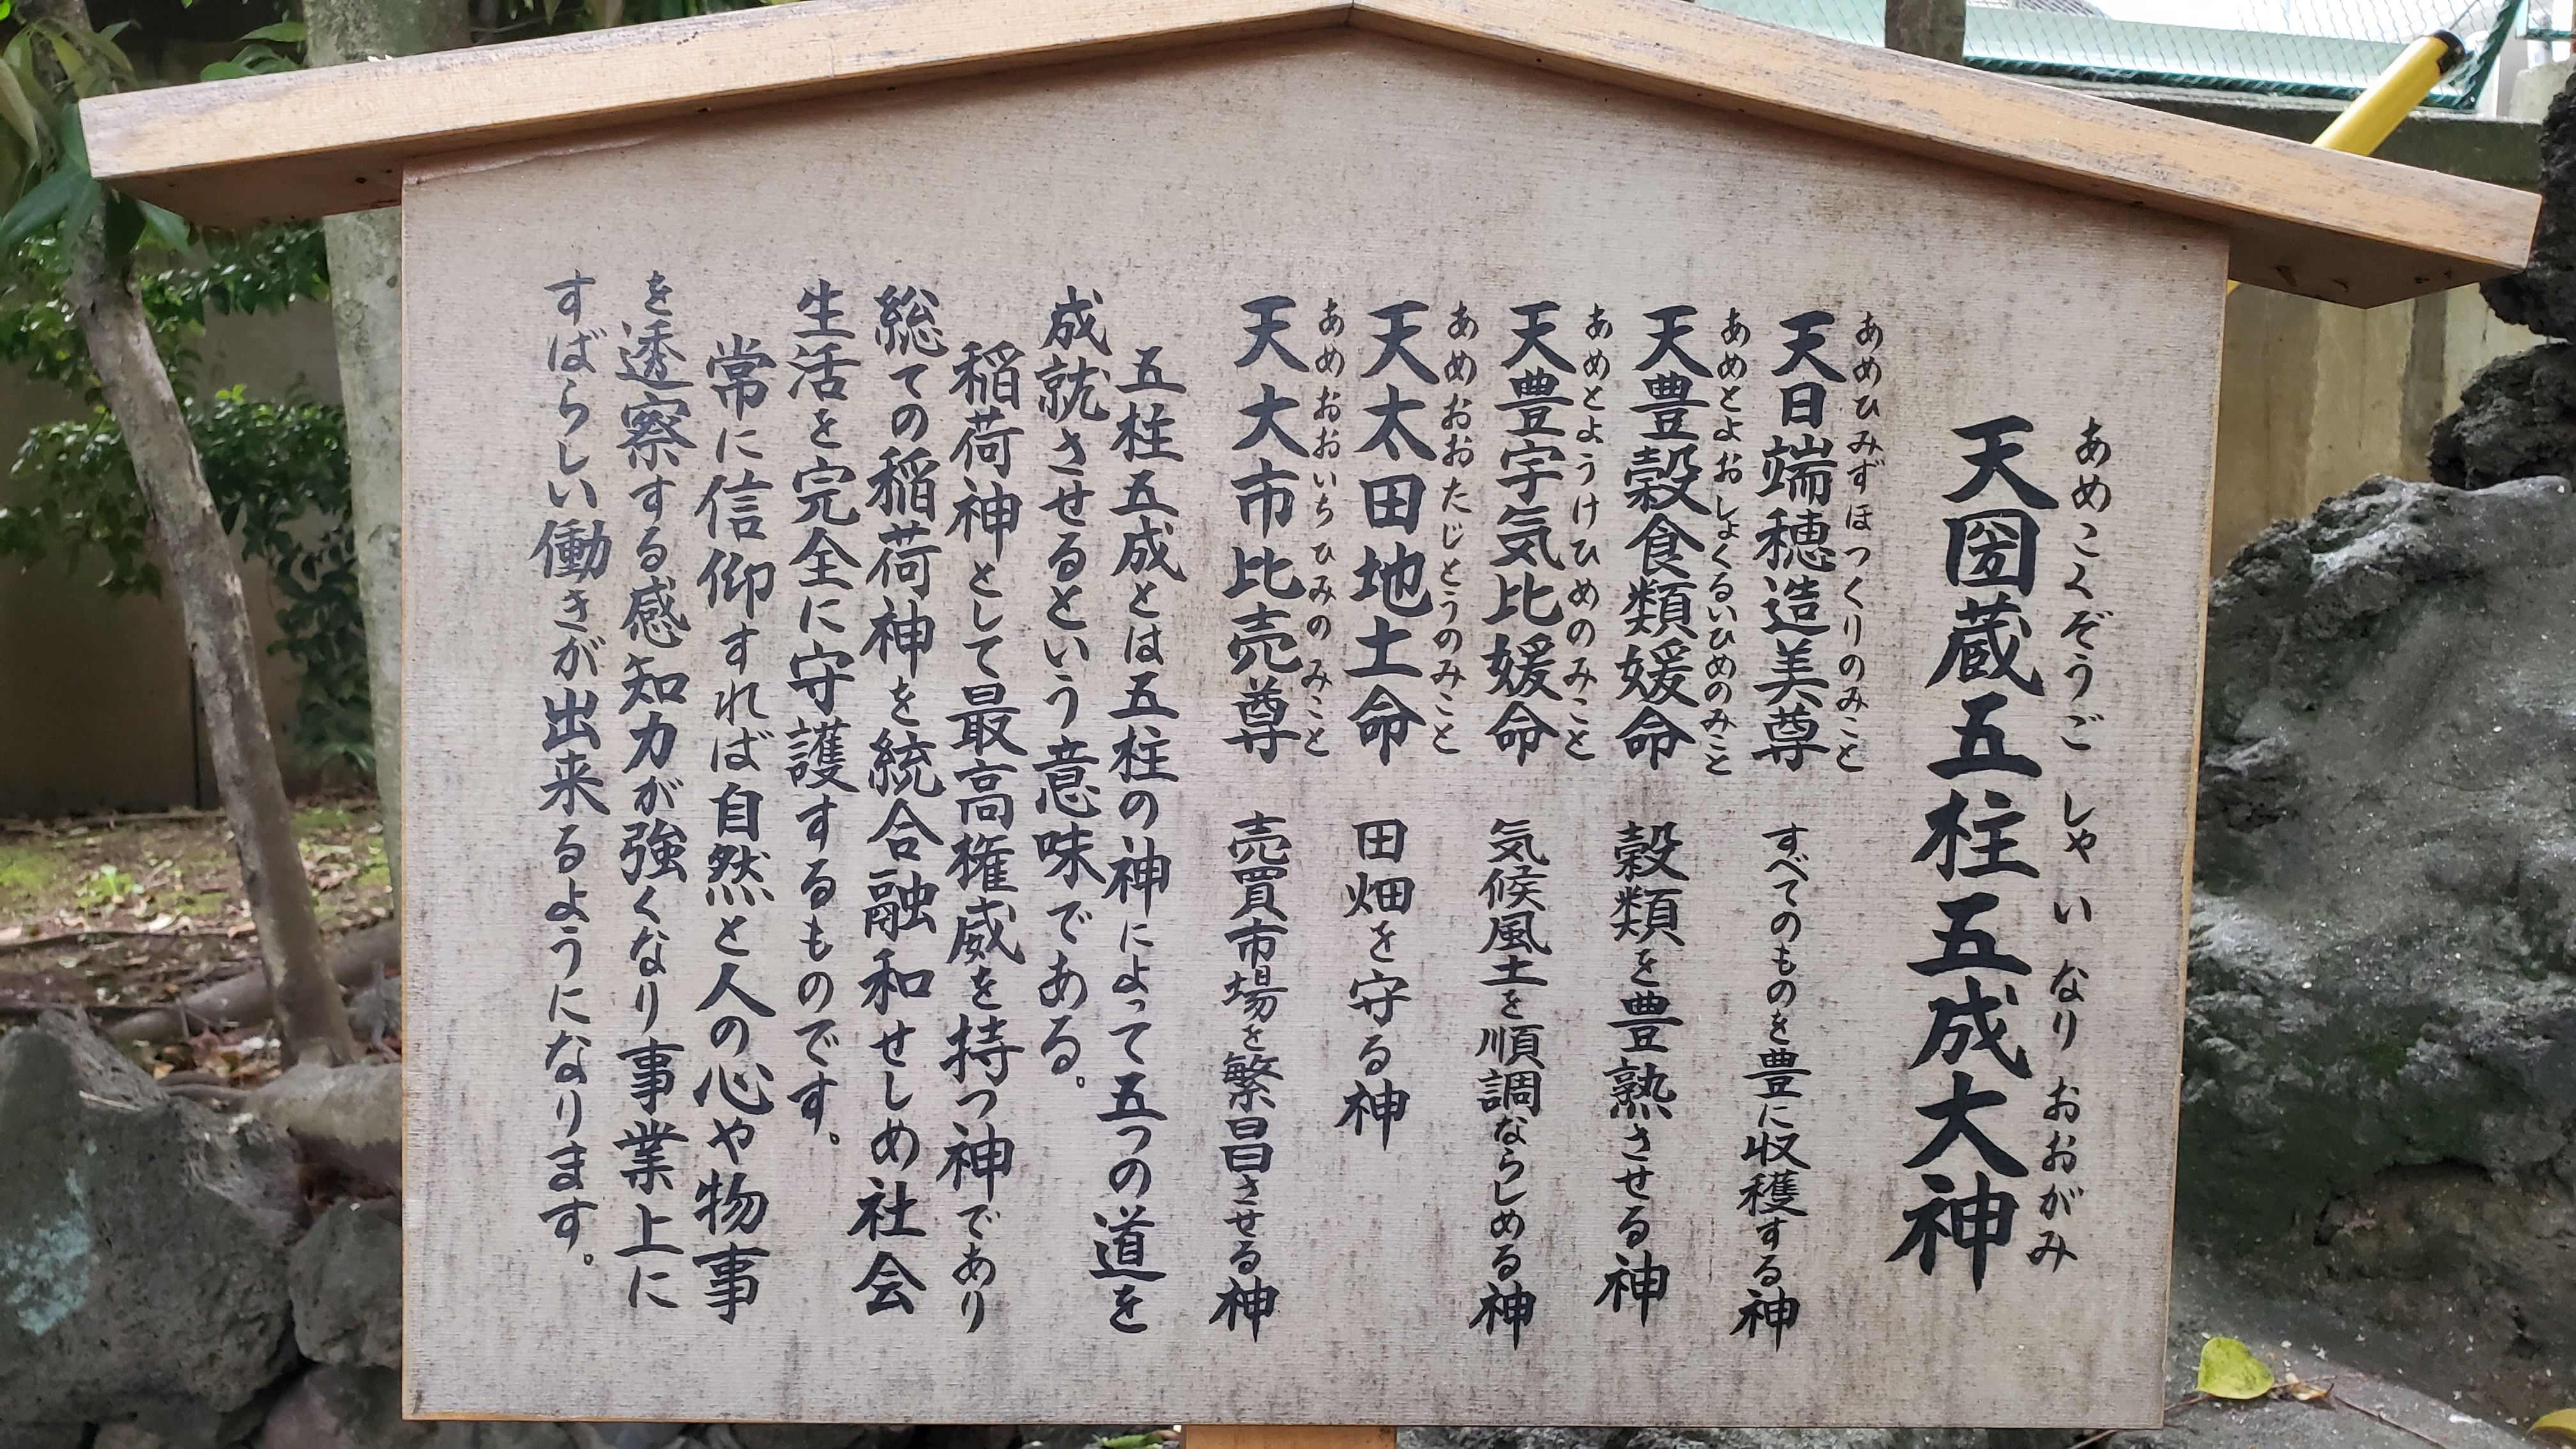 あめこくぞうご しゃ い なり おおがみ
天圀蔵五柱五成大神
あめひみずほつくりのみこと
天日端穂造美尊 すべてのものを豊に収穫する神
あめとよおしょくるいひめのみこと
天豊穀食類媛命 穀類を豊熟させる神
あめとようけひめのみこと
天豊宇気比媛命 気候風土を順調ならしめる神
あめおおたじとうのみこと
天太田地土命 田畑を守る神
あめおおいちひみのみこと
天大市比売尊 売買市場を繁昌させる神
五柱五成とは五柱の神によって五つの道を
成就させるという意味である。
稲荷神として最高権威を持つ神であり
総ての稲荷神を統合融和せしめ社会
生活を完全に守護するものです。
常に信仰すれば自然と人の心や物事
を透察する感知力が強くなり事業上に
すばらしい働きが出来るようになります。